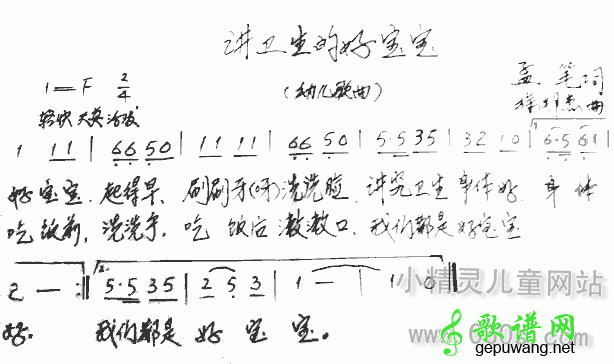 讲卫生的好宝宝
(幼儿歌曲)
1=F 2/4
孟 笔 词
曲
轻快 天真 活泼
1 11 | 66 50 | 11 11 | 66 50 | 5·5 35 | 32 10 | 1. 6·5 61 |
好宝宝 起得早, 刷刷牙(呀)洗洗脸 讲究卫生 身体好, 身 体
吃饭前, 洗洗手, 吃饭后 漱漱口, 我们都是好宝宝
2 — :‖ 2. 5·5 35 | 25 3 | 1 — | 1 0 ‖
好. 我们都是 好 宝 宝。
小精灵儿童网站
歌谱网
gepuwang.net